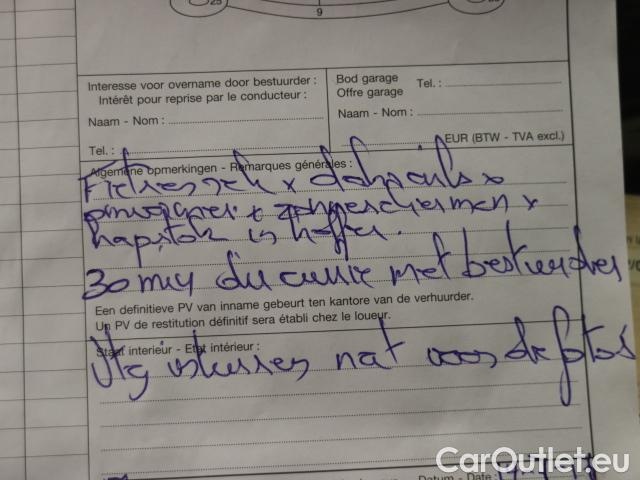 25
9
Interesse voor overname door bestuurder :
Intérêt pour reprise par le conducteur :
Naam - Nom :
Tel. :
Bod garage
Offre garage
Tel. :
Naam - Nom :
EUR (BTW - TVA excl.)
Algemene opmerkingen - Remarques générales :
Fietsenrek x dakrails x
x zonneschermen x
in koffer.
30 met bestuurder
Een definitieve PV van inname gebeurt ten kantore van de verhuurder.
Un PV de restitution définitif sera établi chez le loueur.
Staat interieur - Etat intérieur :
nat voor de fotos
Datum - Date :
CarOutlet.eu